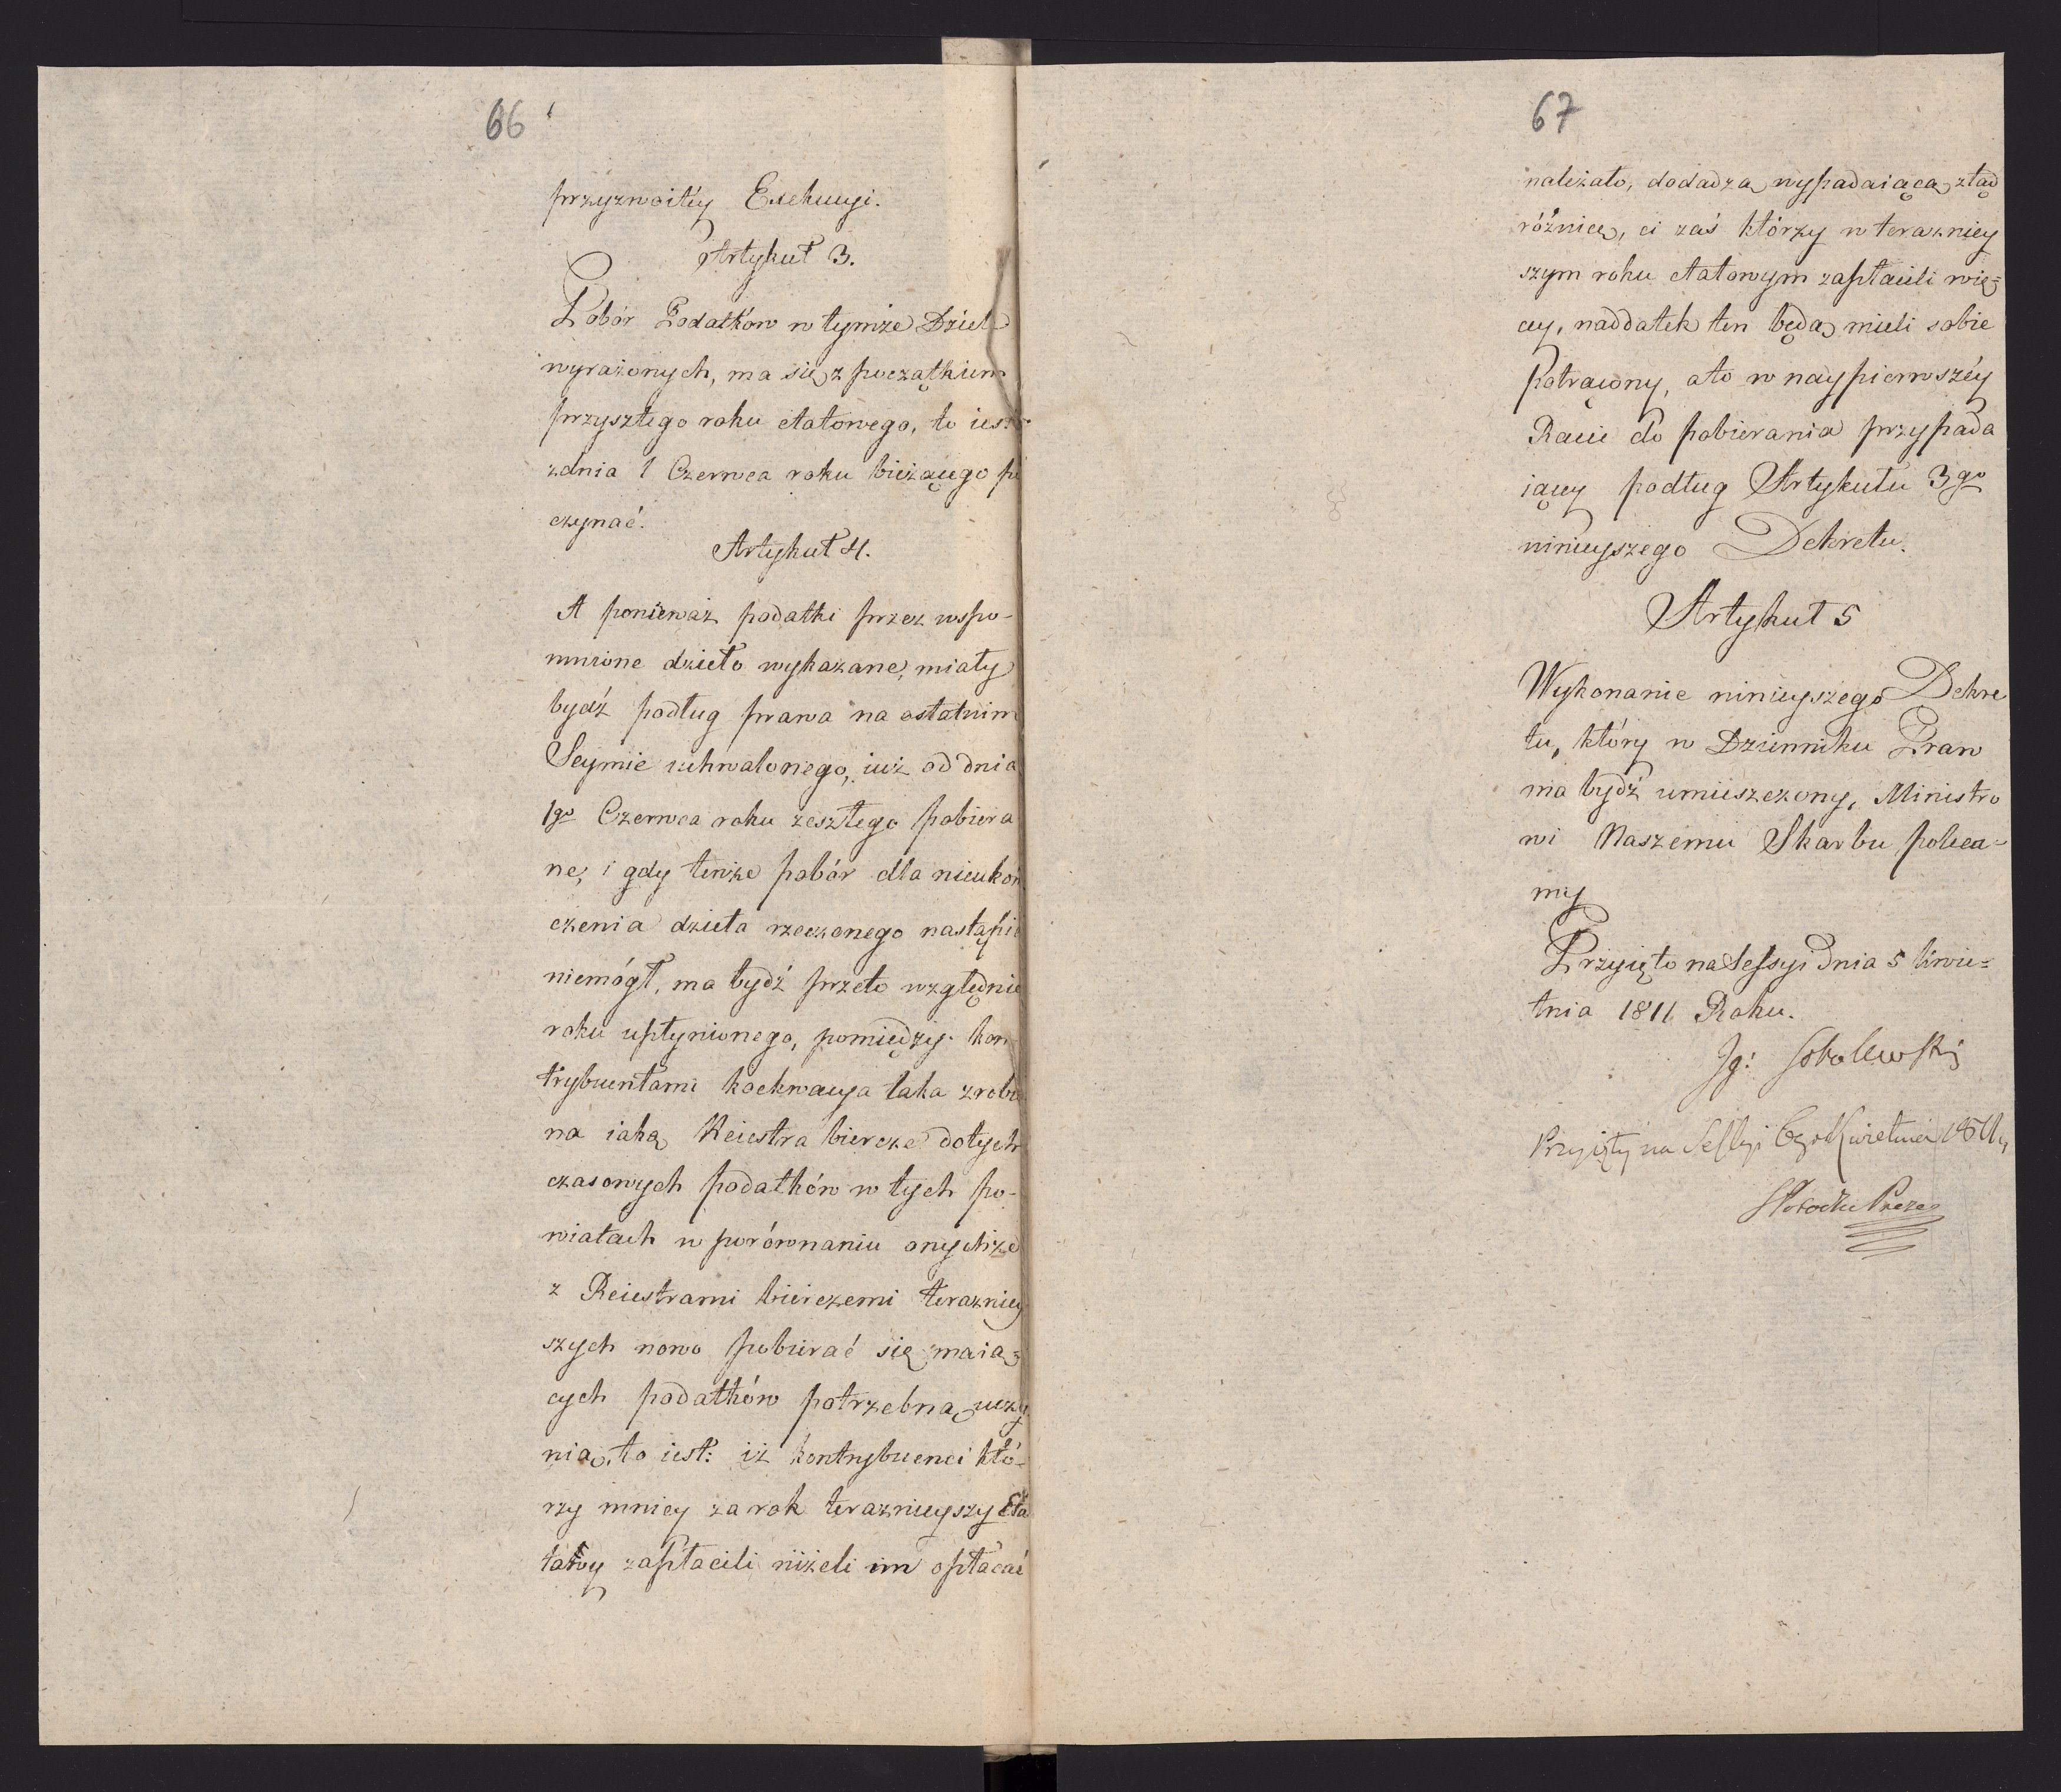 66
przyzwoitéy Exekucyi.
Artykuł 3.
Pobór Podatków w tymże Dziele
wyrażonych, ma się z początkiem
przyszłego roku etatowego, to iest
zdnia 1 Czerwca roku bieżącego po
czynać.
Artykuł 4.
A ponieważ podatki przez wspo-
mnione dzieło wykazane, miały
bydź podług prawa na ostatnim
Seymie uchwalonego, iuż od dnia
1go Czerwca roku zeszłego pobiera
ne, i gdy tenże pobór dla nieukoń
czenia dzieła rzeczonego nastąpić
niemógł, ma bydź przeto względnie
roku upłynionego, pomiędzy kon
trybuentami koekwacya taka zrobio
na iaką Reiestra biercze dotych
czasowych podatków w tych po-
wiatach w porównaniu onychże
z Reiestrami bierczemi teraźniey
szych nowo pobierać się maią-
cych podatków potrzebną uczy
nią, to iest: iż kontrybuenci któ-
rzy mniey za rok teraźnieyszy Eta
towy zapłacili niżeli im opłacać
67
należało, dodadzą wypadaiącą ztąd
różnicę, ci zaś którzy w teraźniey
szym roku etatowym zapłacili wię=
cey, naddatek ten będą mieli sobie
potrącony, ato w naypierwszéy
Racie do pobierania przypada
iącey podług Artykułu 3go
ninieyszego Dekretu.
Artykuł 5
Wykonanie ninieyszego Dekre
tu, który w Dzienniku Praw
ma bydź umieszczony, Ministro
wi Naszemu Skarbu poleca=
my
Przyięto na Sessyi dnia 5 Kwie=
tnia 1811 Roku.
Ig: Sobolewski
Przyięty na Sessyi 6go Kwietnia 1811
SPotocki Prezes